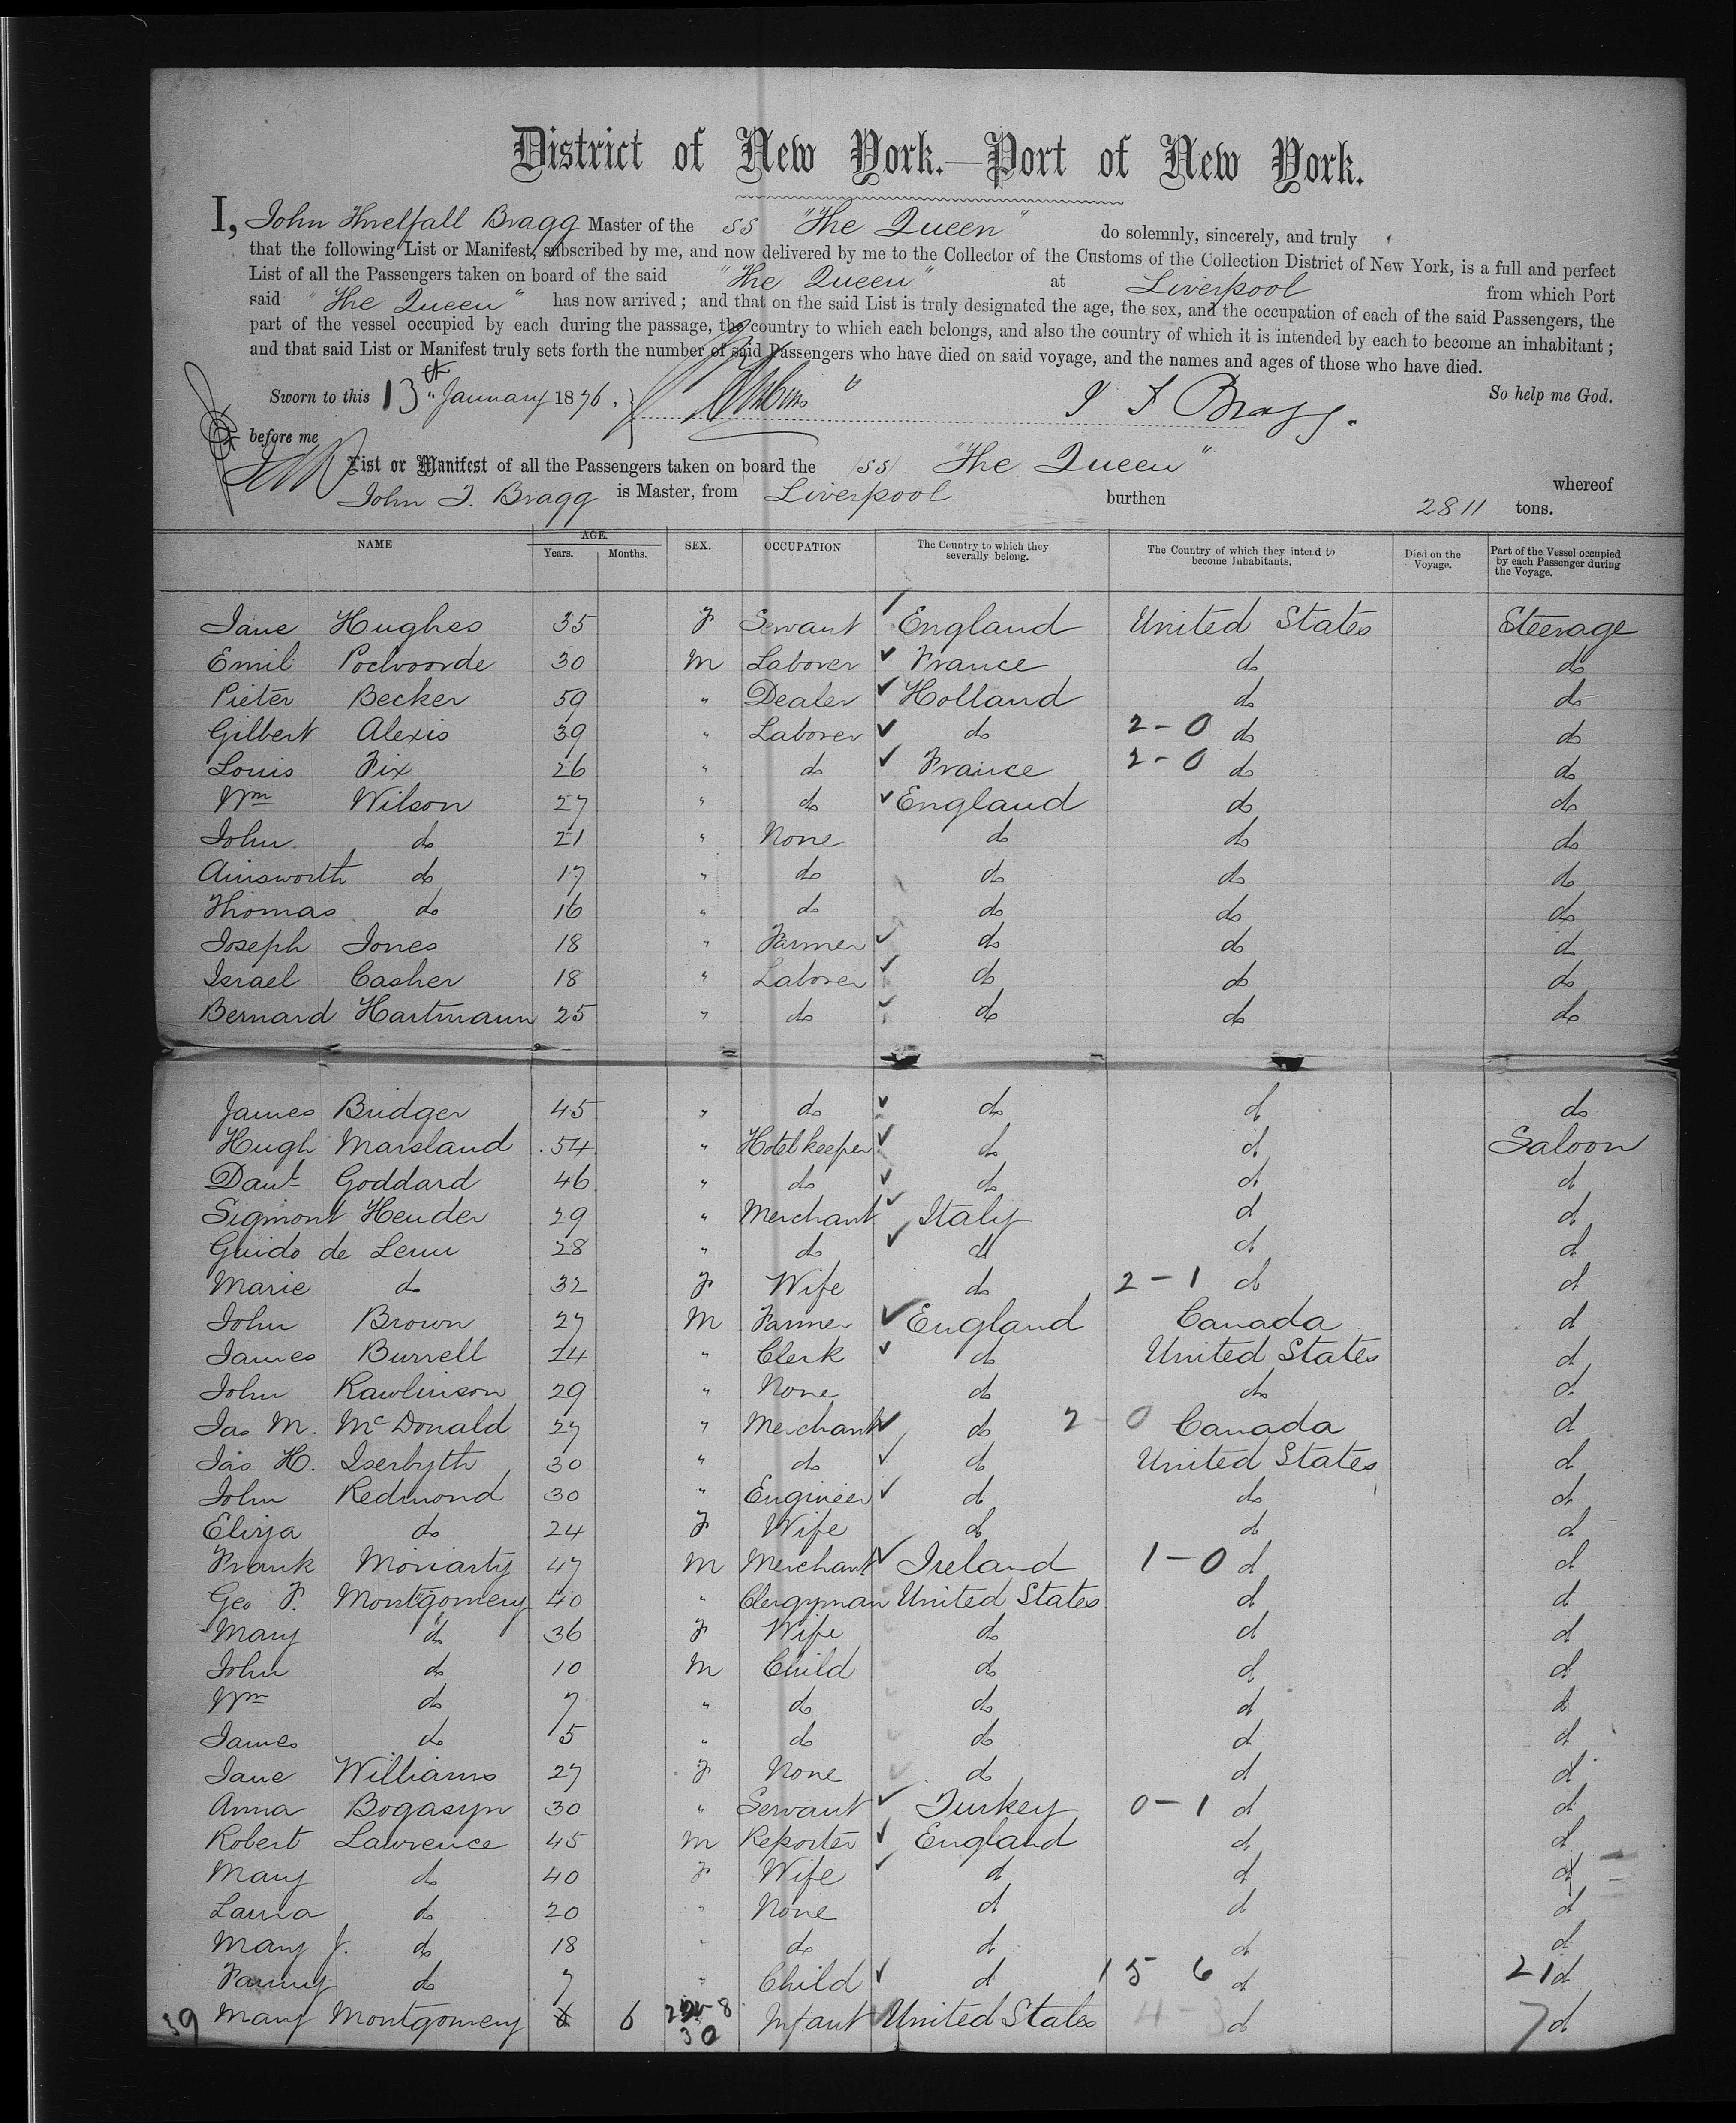 District of New York.—Port of New York.
I, John Threlfall Bragg Master of the SS "The Queen" do solemnly, sincerely, and truly
that the following List or Manifest, subscribed by me, and now delivered by me to the Collector of the Customs of the Collection District of New York, is a full and perfect
List of all the Passengers taken on board of the said "The Queen" at Liverpool from which Port
said "The Queen" has now arrived; and that on the said List is truly designated the age, the sex, and the occupation of each of the said Passengers, the
part of the vessel occupied by each during the passage, the country to which each belongs, and also the country of which it is intended by each to become an inhabitant;
and that said List or Manifest truly sets forth the number of said Passengers who have died on said voyage, and the names and ages of those who have died.
Sworn to this 13th January 1876. J T Bragg. So help me God.
before me
List or Manifest of all the Passengers taken on board the (SS) "The Queen" whereof
John T. Bragg is Master, from Liverpool burthen 2811 tons.
NAME AGE. Years. Months. SEX. OCCUPATION The Country to which they severally belong. The Country of which they intend to become Inhabitants. Died on the Voyage. Part of the Vessel occupied by each Passenger during the Voyage.
Jane Hughes 35 F Servant England United States Steerage
Emil Poelvoorde 30 M Laborer France do do
Pieter Becker 59 " Dealer Holland do do
Gilbert Alexis 39 " Laborer do 2-0 do do
Louis Fix 26 " do France 2-0 do do
Wm Wilson 27 " do England do do
John do 21 " None do do do
Ainsworth do 17 " do do do do
Thomas do 16 " do do do do
Joseph Jones 18 " Farmer do do do
Israel Casher 18 " Laborer do do do
Bernard Hartmann 25 " do do do do
James Bridger 45 " do do do do
Hugh Marsland 54 " Hotel keeper do do Saloon
Danl Goddard 46 " do do do do
Sigmont Hender 29 " Merchant Italy do do
Guido de Lenn 28 " do do do do
Marie do 32 F Wife do 2-1 do do
John Brown 27 M Farmer England Canada do
James Burrell 24 " Clerk do United States do
John Rawlinson 29 " None do do do
Jas M. McDonald 27 " Merchant do 2-0 Canada do
Jas H. Iserbyth 30 " do do United States do
John Redmond 30 " Engineer do do do
Eliza do 24 F Wife do do do
Frank Moriarty 47 M Merchant Ireland 1-0 do do
Geo F. Montgomery 40 " Clergyman United States do do
Mary do 36 F Wife do do do
John do 10 M Child do do do
Wm do 7 " do do do do
James do 5 " do do do do
Jane Williams 27 F None do do do
Anna Bogasyn 30 " Servant Turkey 0-1 do do
Robert Lawrence 45 M Reporter England do do
Mary do 40 F Wife do do do
Laura do 20 " None do do do
Mary J. do 18 " do do do do
Fanny do 7 " Child do 15 6 do 21 do
39 Mary Montgomery 6 30 Infant United States 4-3 do 7 do